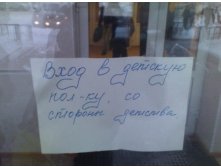 Вход в детскую
пол-ку, со
стороны детства